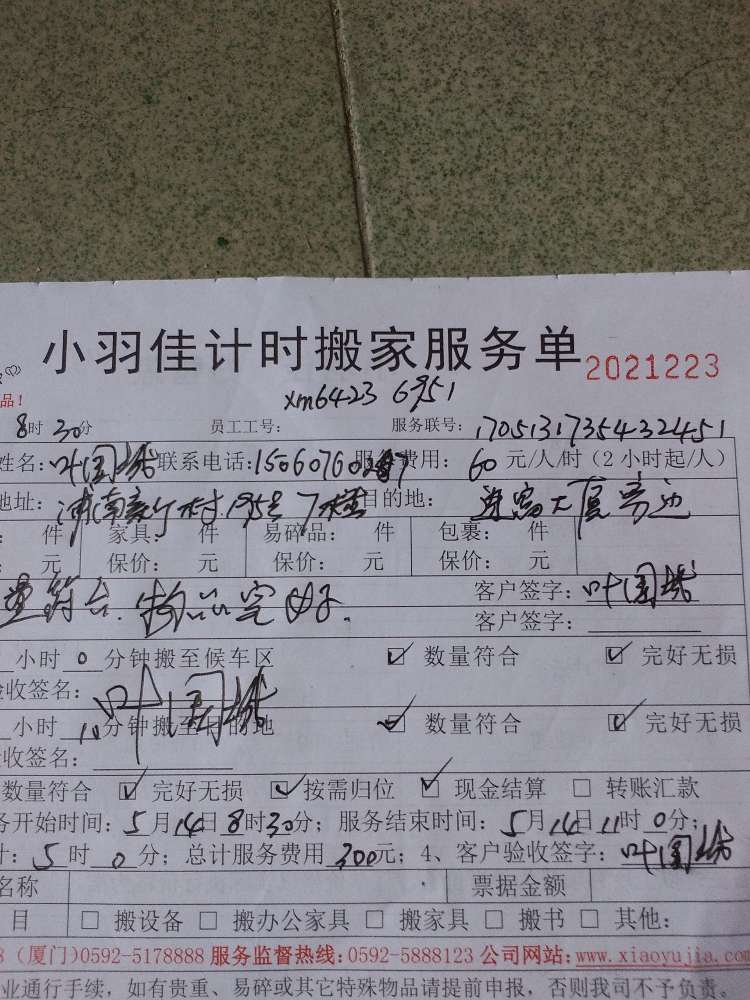 小羽佳计时搬家服务单 2021223
品！ xm6423 6951
8时30分 员工工号： 服务联号：170513173543 22451
姓名：叶国 联系电话：15060760 服务费用：60元/人/时（2小时起/人）
地址： 目的地： 大厦旁边
件 家具： 件 易碎品： 件 包裹： 件
元 保价： 元 保价： 元 保价： 元
量符合．物品完好． 客户签字：叶国
客户签字：
小时 0 分钟搬至候车区 ☑ 数量符合 ☑ 完好无损
验收签名：叶国
小时 10 分钟搬至目的地 ☑ 数量符合 ☑ 完好无损
收签名：
数量符合 ☑ 完好无损 ☑ 按需归位 ☑ 现金结算 □ 转账汇款
务开始时间：5月14日8时30分；服务结束时间：5月14日11时0分；
计：5时0分；总计服务费用300元；4、客户验收签字：叶国
名称 票据金额
目 □ 搬设备 □ 搬办公家具 □ 搬家具 □ 搬书 □ 其他：
8（厦门)0592-5178888 服务监督热线：0592-5888123 公司网站：www.xiaoyujia.com
业通行手续，如有贵重、易碎或其它特殊物品请提前申报，否则我司不予负责。